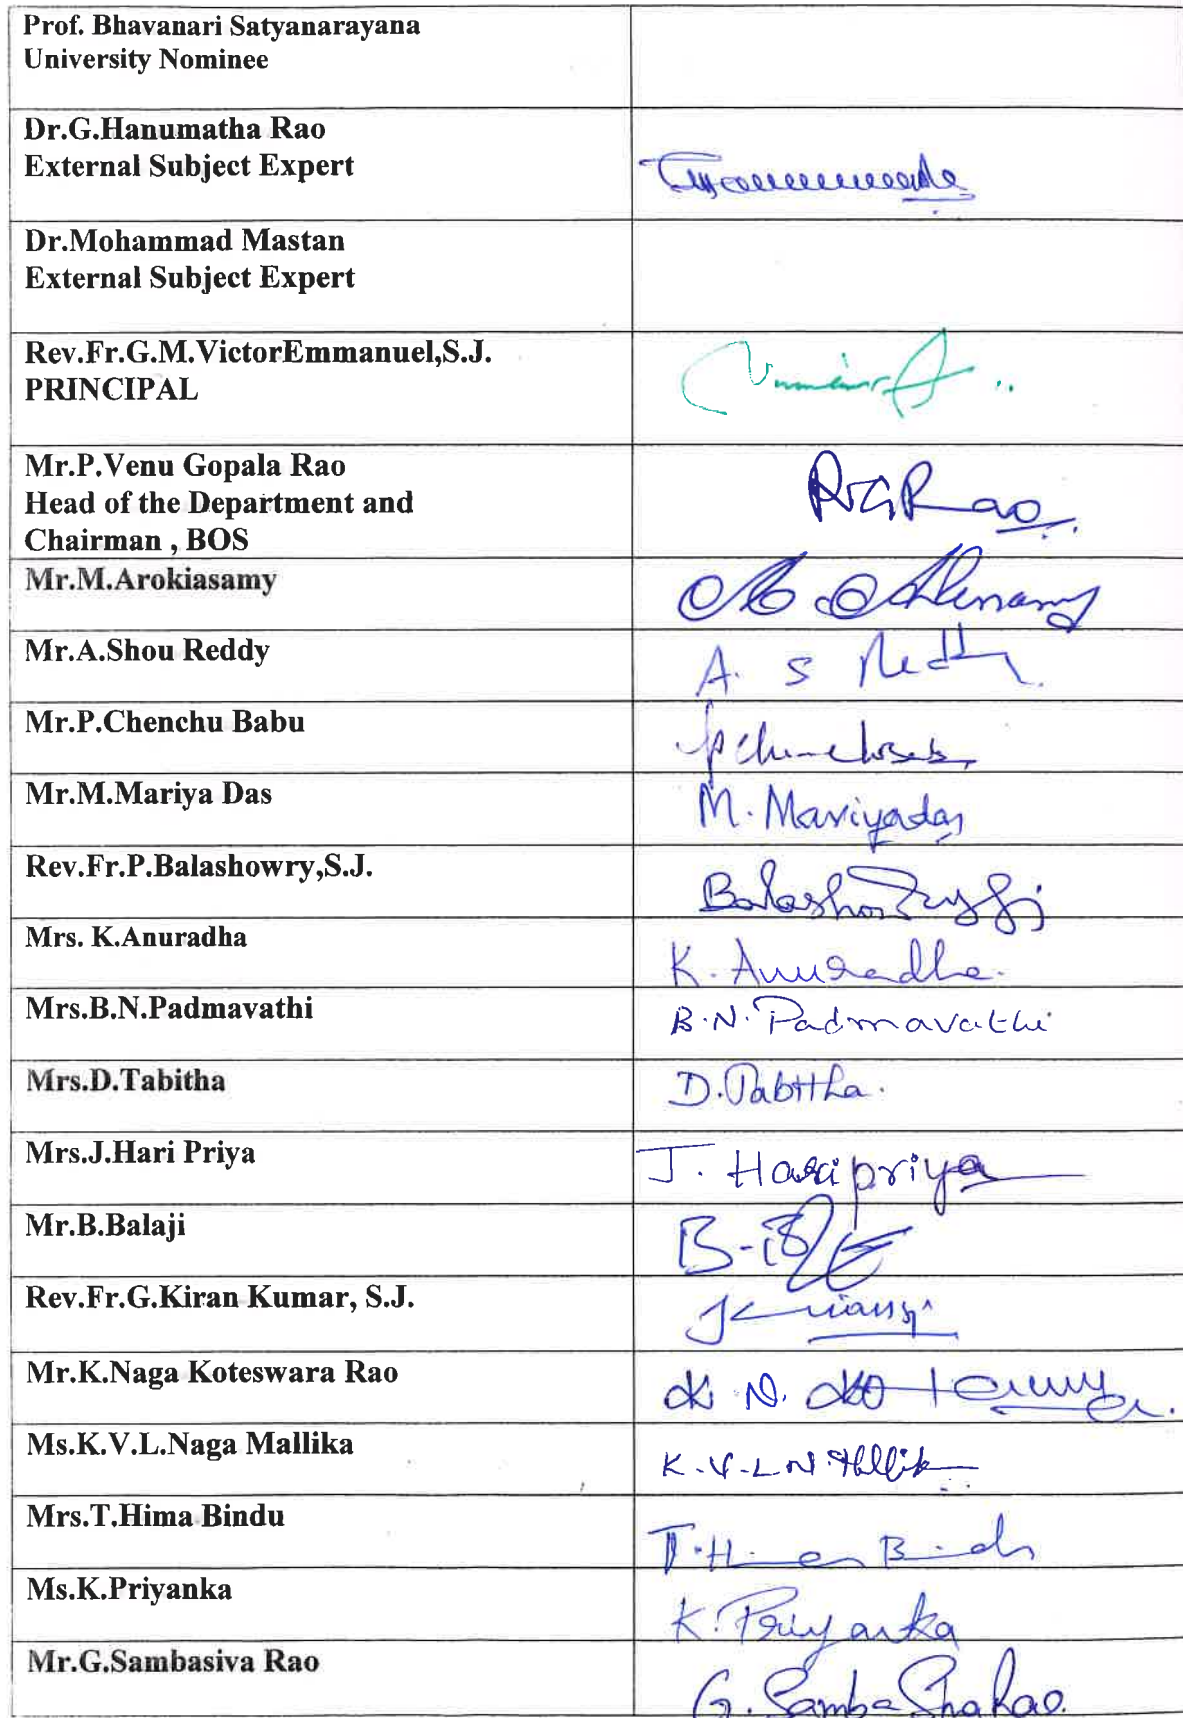 Prof. Bhavanari Satyanarayana
University Nominee
Dr.G.Hanumatha Rao
External Subject Expert
Dr.Mohammad Mastan
External Subject Expert
Rev.Fr.G.M.VictorEmmanuel,S.J.
PRINCIPAL
Mr.P.Venu Gopala Rao
Head of the Department and
Chairman , BOS
PVGRao
Mr.M.Arokiasamy
Mr.A.Shou Reddy
A. S Reddy
Mr.P.Chenchu Babu
Mr.M.Mariya Das
M. Mariyadas
Rev.Fr.P.Balashowry,S.J.
Balashowry SJ
Mrs. K.Anuradha
K. Anuradha.
Mrs.B.N.Padmavathi
B.N. Padmavathi
Mrs.D.Tabitha
D.Tabitha.
Mrs.J.Hari Priya
J. Haripriya
Mr.B.Balaji
Rev.Fr.G.Kiran Kumar, S.J.
Mr.K.Naga Koteswara Rao
K. N.
Ms.K.V.L.Naga Mallika
K.V.L.N.Mallika
Mrs.T.Hima Bindu
T.Hima Bindu
Ms.K.Priyanka
K. Priyanka
Mr.G.Sambasiva Rao
G. SambaSivaRao.